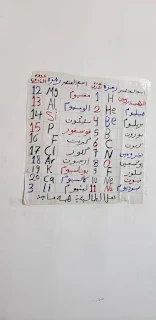 اسم العنصر رمزه اسم العنصر رمزه
H 1 مغنسيوم Mg 12
هيليوم He 2 الومنيوم Al 13
بريليوم Be 4 سليكون Si 14
بورون B 5 فوسفور P 15
كربون C 6 كبريت F 16
نتروجين N 7 كلور Cl 17
اوكسجين O 8 Ar 18
فلور F 9 بوتاسيوم K 19
نيون Ne 10 كالسيوم Ca 20
صوديوم Na 11 ليثيوم Li 3